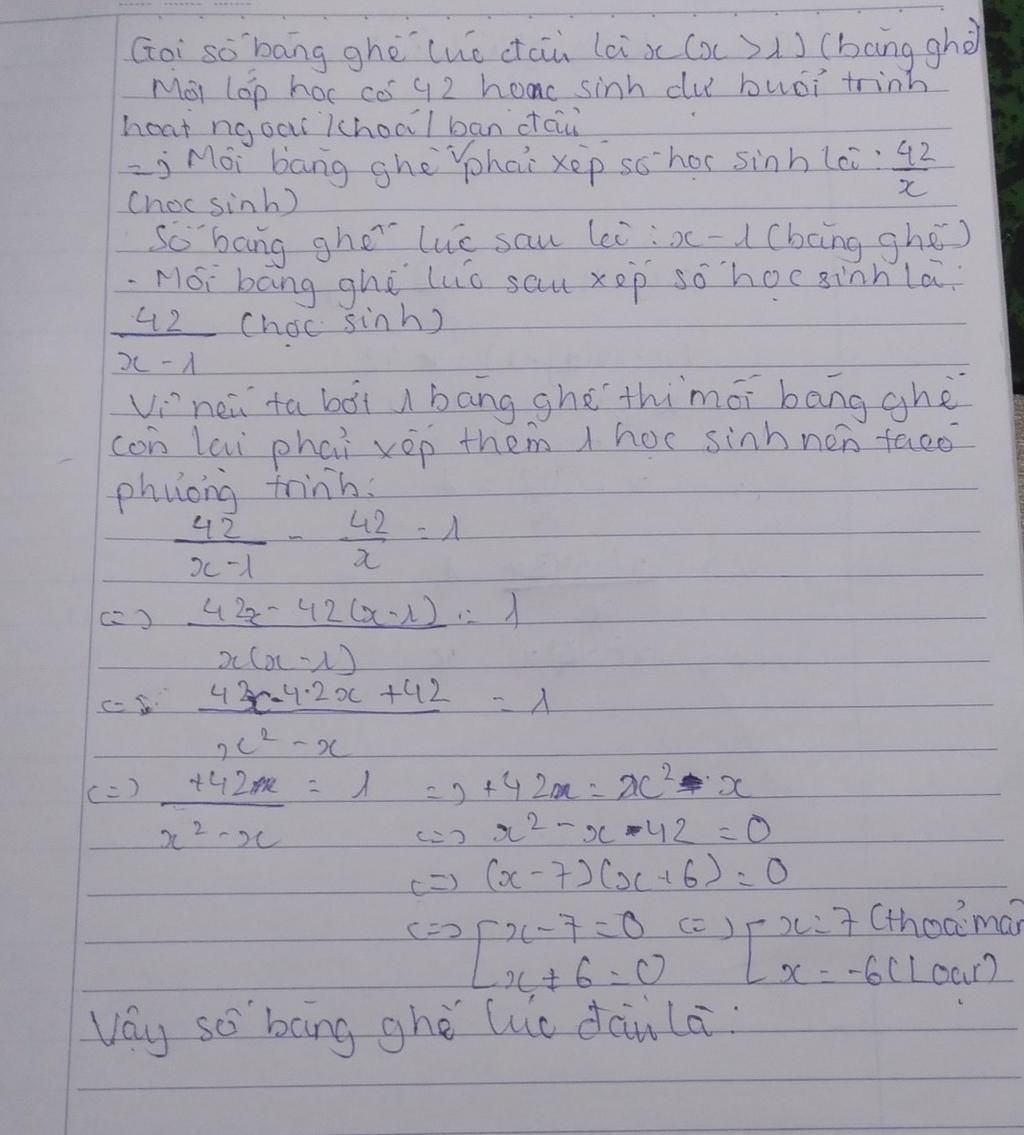 Gọi số băng ghế lúc đầu là x (x > 1) (băng ghế)
Một lớp học có 42 hoac sinh dự buổi trình
hoạt ngoại khoá / ban đầu
=> Mỗi băng ghế phải xếp số học sinh là: 42/x
(học sinh)
Số băng ghế lúc sau là: x - 1 (băng ghế)
- Mỗi băng ghế lúc sau xếp số học sinh là:
42/(x - 1) (học sinh)
Vì nếu ta bớt 1 băng ghế thì mỗi băng ghế
còn lại phải xếp thêm 1 học sinh nên ta có
phương trình:
42/(x - 1) - 42/x = 1
<=> (42x - 42(x - 1))/(x(x - 1)) = 1
<=> (42x - 42x + 42)/(x² - x) = 1
<=> +42/(x² - x) = 1 => +42 = x² - x
<=> x² - x - 42 = 0
<=> (x - 7)(x + 6) = 0
<=> [x - 7 = 0 <=> [x = 7 (thoả mãn
x + 6 = 0 x = -6 (Loại)
Vậy số băng ghế lúc đầu là: